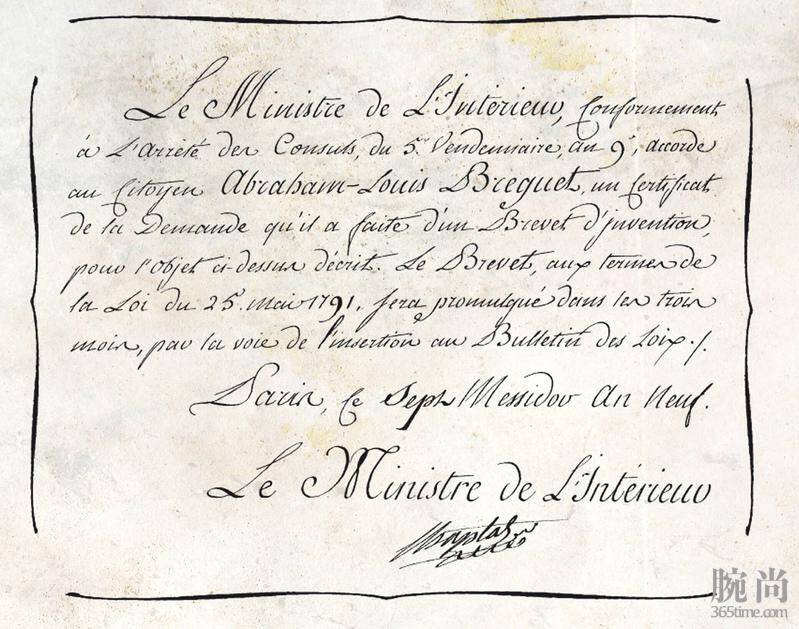 Le Ministre de L'Intérieur, Conformément
à L'Arrêté des Consuls, du 5.e Vendemiaire, an 9.e, accorde
au Citoyen Abraham-Louis Breguet, un Certificat
de la Demande qu'il a faite d'un Brevet d'Invention,
pour l'Objet ci-dessus décrit. Le Brevet, aux termes de
la Loi du 25. mai 1791, sera promulgué dans les trois
mois, par la voie de l'insertion au Bulletin des Loix ./.
Paris, ce Sept Messidor An Neuf.
Le Ministre de L'Intérieur
Chaptal
腕尚
365time.com